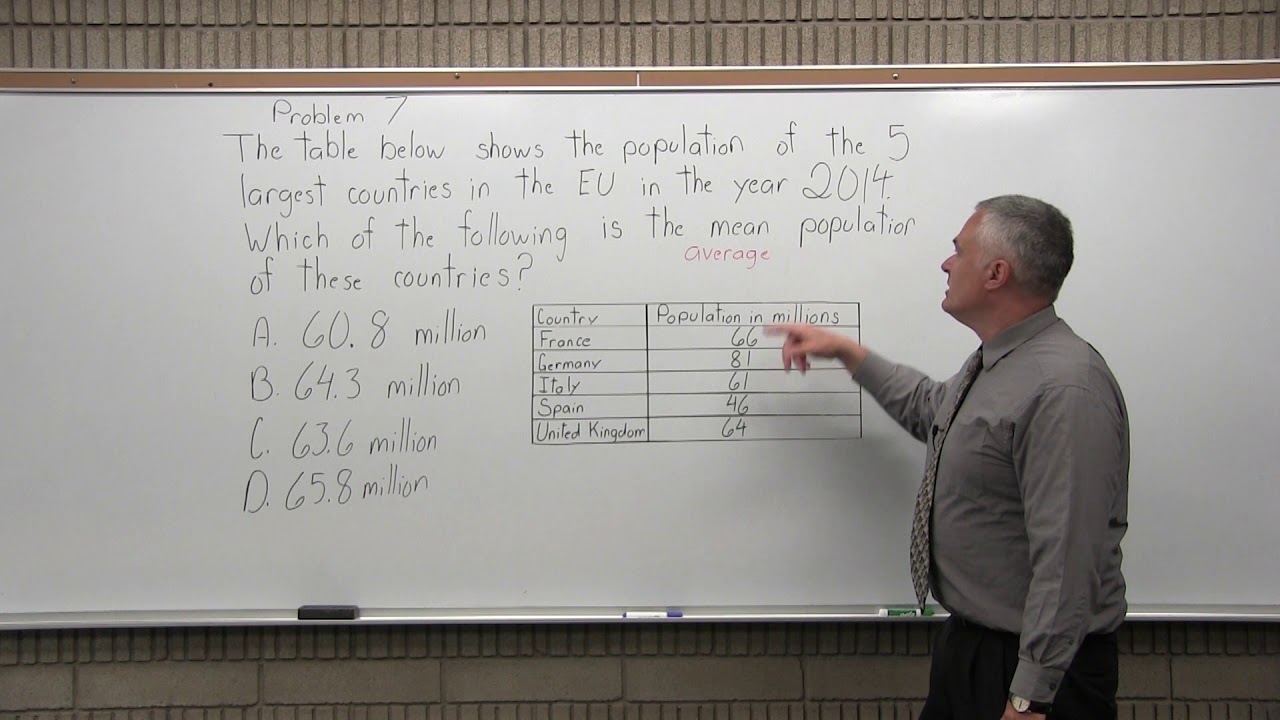 Problem 7
The table below shows the population of the 5
largest countries in the EU in the year 2014.
Which of the following is the mean population
average
of these countries?
A. 60.8 million
B. 64.3 million
C. 63.6 million
D. 65.8 million
Country Population in millions
France 66
Germany 81
Italy 61
Spain 46
United Kingdom 64